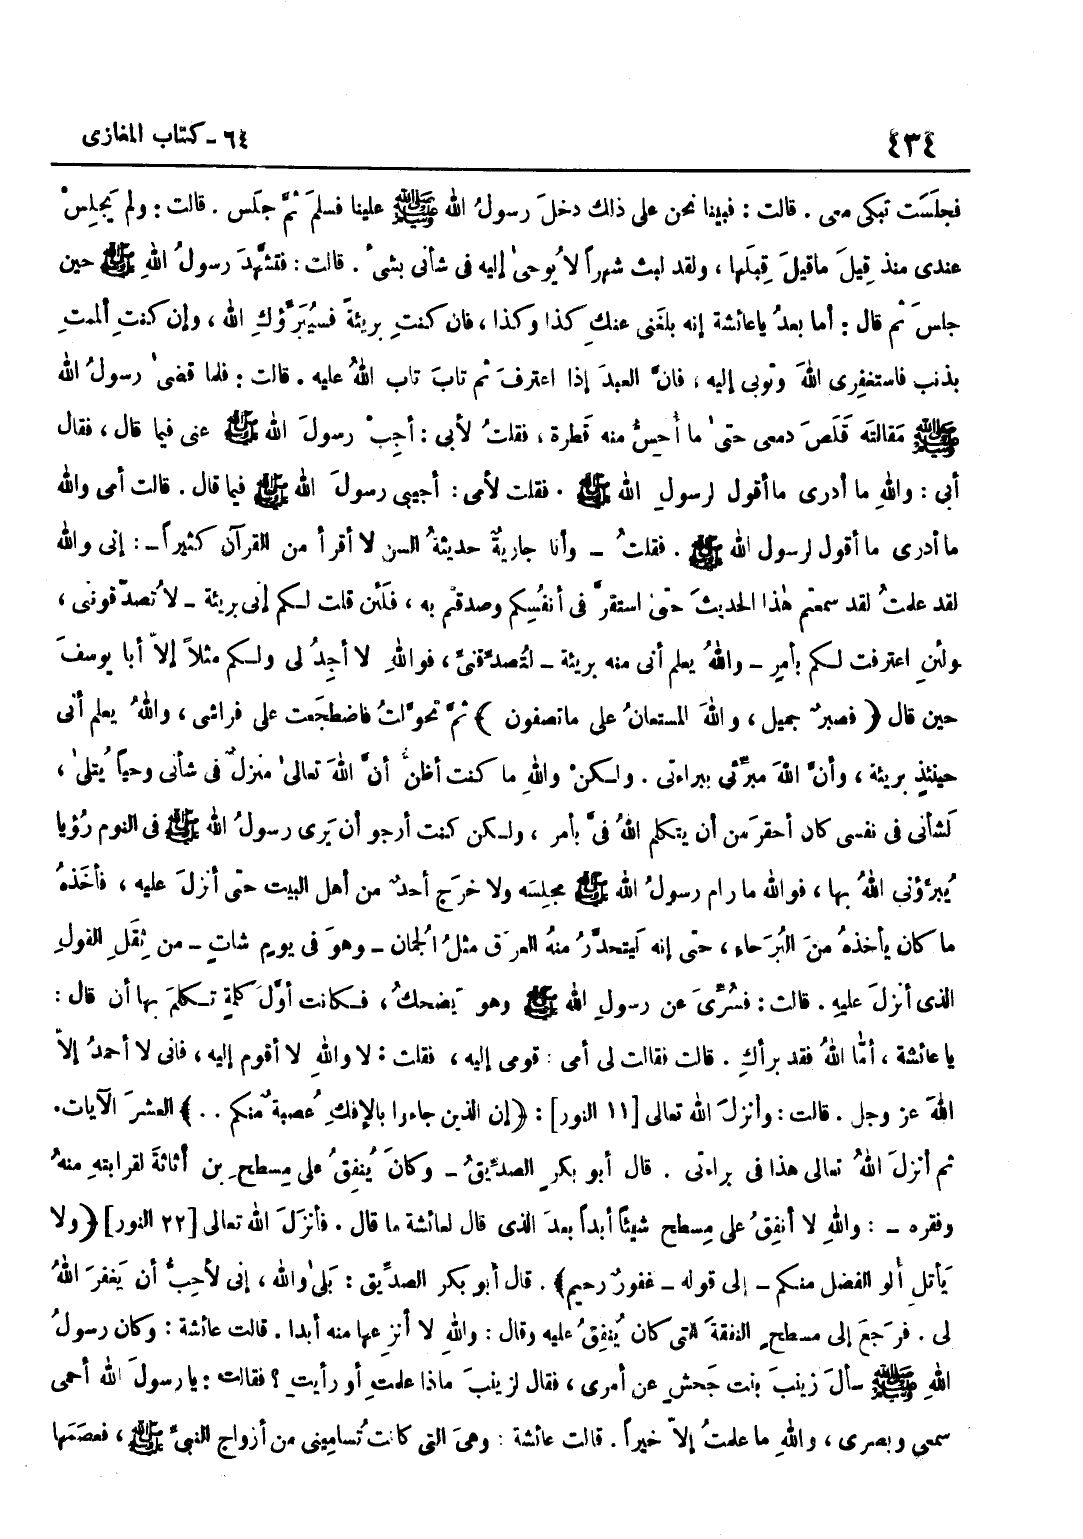 ٤٣٤
٦٤ - كتاب المغازى
فجلَسَت تبكى معى . قالت : فبينا نحن على ذلك دخلَ رسولُ الله ﷺ علينا فسلمَ ثمَّ جلَس . قالت : ولم يَجلِسْ
عندى منذ قِيلَ ماقيلَ قِبلَها ، ولقد لبث شهراً لا يُوحىٰ إليه فى شأنى بشىْ . قالت : فتشَهدَ رسولُ اللهِ ﷺ حين
جلسَ ثم قال : أما بعدُ ياعائشة إنه بلغَنى عنكِ كذا وكذا ، فان كنتِ بريئةً فسيُبَرِّؤُكِ الله ، وإن كنتِ ألممتِ
بذنب فاستغفِرى اللهَ وتوبى إليه ، فانَّ العبدَ إذا اعترفَ ثم تابَ تاب اللهُ عليه . قالت : فلما قضىٰ رسولُ الله
ﷺ مَقالتَه قَلَصَ دمعى حتىٰ ما أُحِسُّ منه قَطرة ، فقلتُ لأبى : أجِبْ رسولَ الله ﷺ عنى فيما قال ، فقال
أبى : واللهِ ما أدرى ماأقول لرسولِ الله ﷺ . فقلت لأمى : أجيبى رسولَ الله ﷺ فيما قال . قالت أمى والله
ما أدرى ما أقول لرسول الله ﷺ . فقلتُ - وأنا جاريةٌ حديثةُ السن لا أقرأ من القرآن كثيراً - : إنى والله
لقد علمتُ لقد سمعتم هٰذا الحديثَ حتىٰ استقرَّ فى أنفُسِكم وصدقتم به ، فلَئن قلت لكم إنى بريئة - لا تُصدّقوننى ،
ولئنِ اعترفت لكم بأمرٍ - واللهُ يعلم أنى منه بريئة - لتُصدِّقنِّى ، فواللهِ لا أجِدُ لى ولكم مثلاً إلاّ أبا يوسفَ
حين قال ﴿ فصبرٌ جميل ، واللهَ المستعانُ على ماتصفون ﴾ ثمَّ تحوَّلتُ فاضطجَعت على فراشى ، واللهُ يعلم أنى
حينئذٍ بريئة ، وأنَّ اللهَ مبرِّئى ببراءتى . ولكنْ واللهِ ما كنت أظنُّ أنَّ اللهَ تعالىٰ منزلٌ فى شأنى وحياً يُتلىٰ ،
لَشأنى فى نفسى كان أحقرَ من أن يتكلم اللهُ فىَّ بأمر ، ولكن كنت أرجو أن يَرى رسولُ الله ﷺ فى النوم رُؤيا
يُبرِّؤنى اللهُ بها ، فوالله ما رام رسولُ الله ﷺ مجلِسَه ولا خرَج أحدٌ من أهل البيت حتى أنزلَ عليه ، فأخَذهُ
ما كان يأخذهُ منَ البُرَحاء ، حتى إنه لَيتحدَّرُ منهُ العرَق مثلُ الجمان - وهوَ فى يومٍ شاتٍ - من ثِقَلِ القولِ
الذى أنزلَ عليهِ . قالت : فسُرِّىَ عن رسولِ الله ﷺ وهو يَضحكُ ، فكانت أوَّلَ كلمةٍ تكلمَ بها أن قال :
يا عائشة ، أمّا اللهُ فقد برأكِ . قالت فقالت لى أمى : قومى إليه ، فقلت : لا واللهِ لا أقوم إليه ، فانى لا أحمدُ إلاّ
اللهَ عز وجل . قالت : وأنزلَ الله تعالى [ ١١ النور ] : ﴿ إن الذين جاءوا بالإفكِ عُصبةٌ منكم . . ﴾ العشرَ الآيات.
ثم أنزلَ اللهُ تعالى هذا فى براءتى . قال أبو بكرٍ الصدّيقُ - وكانَ يُنفِقُ على مِسطحِ بن أثاثةَ لقرابتهِ منهُ
وفقره - : واللهِ لا أنفِقُ على مِسطح شيئاً أبداً بعدَ الذى قال لعائشة ما قال . فأنزَلَ الله تعالى [ ٢٢ النور ] ﴿ ولا
يَأتلِ أُلو الفضل منكم - إلى قوله - غفورٌ رحيم ﴾ . قال أبو بكر الصدّيق : بَلىٰ والله ، إنى لأحِبُّ أن يَغفرَ اللهُ
لى . فرَجعَ إلى مسطحٍ النفقةَ التى كان يُنفِقُ عليه وقال : واللهِ لا أنزِعها منه أبدا . قالت عائشة : وكان رسولُ
اللهِ ﷺ سألَ زينبَ بنت جَحش عن أمرى ، فقال لزينبَ ماذا علمتِ أو رأيتِ ؟ فقالت : يا رسولَ الله أحمى
سمعى وبصرى ، واللهِ ما علمتُ إلاّ خيراً . قالت عائشة : وهىَ التى كانت تُسامِينى من أزواج النبىِّ ﷺ ، فعصَمَها